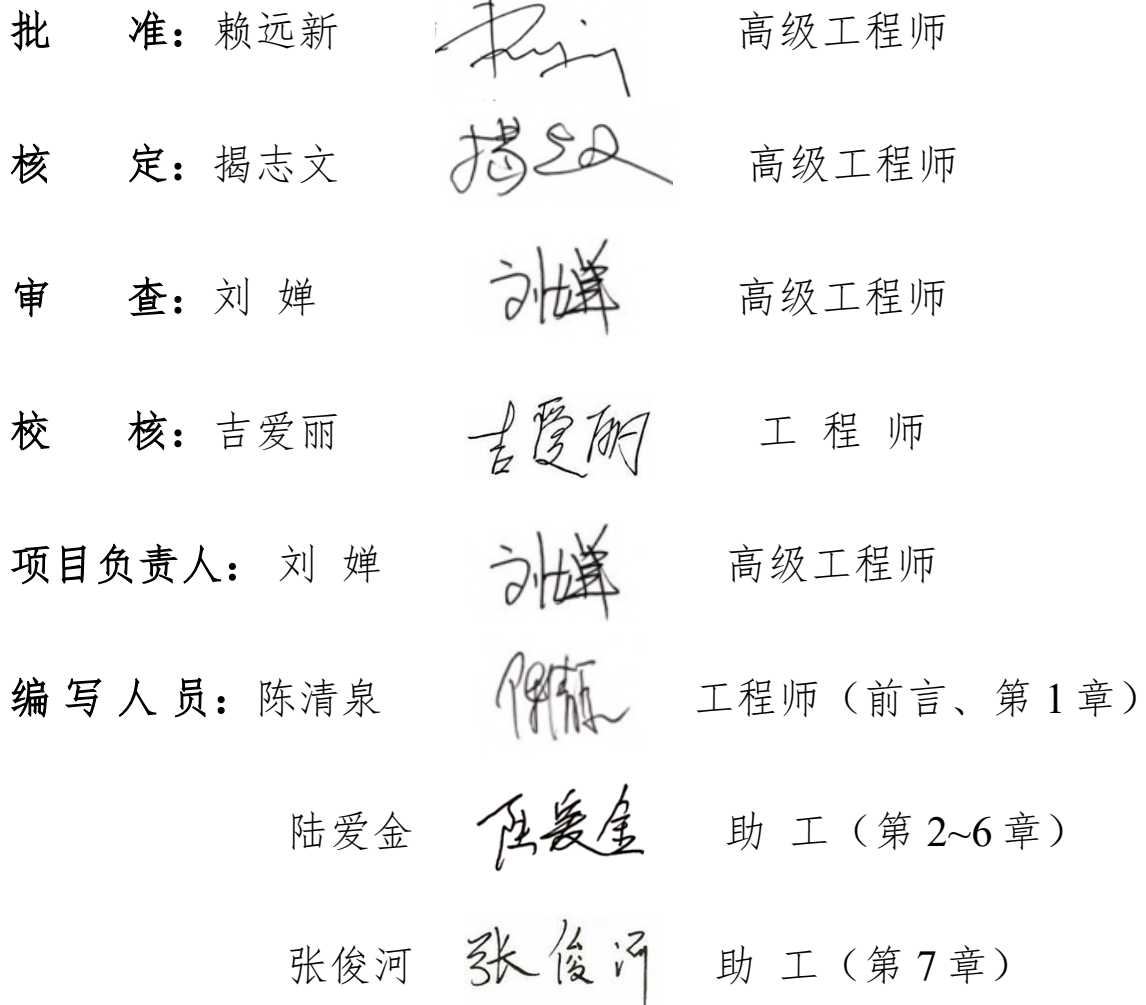 批 准：赖远新 高级工程师
核 定：揭志文 揭志文 高级工程师
审 查：刘 婵 刘婵 高级工程师
校 核：吉爱丽 吉爱丽 工 程 师
项目负责人： 刘 婵 刘婵 高级工程师
编 写 人 员：陈清泉 工程师（前言、第 1 章）
陆爱金 陆爱金 助 工（第 2~6 章）
张俊河 张俊河 助 工（第 7 章）